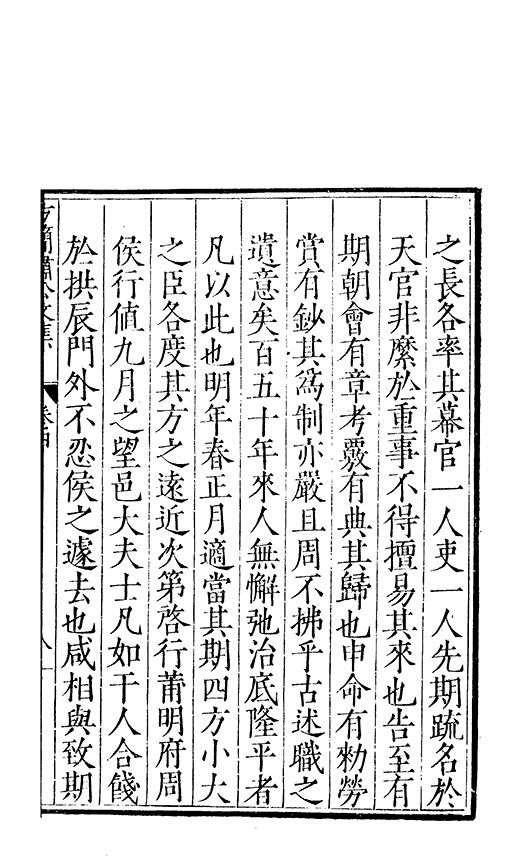 之長各率其幕官一人吏一人先期疏名於
天官非縻於重事不得擅易其來也告至有
期朝會有章考覈有典其歸也申命有勑勞
賞有鈔其爲制亦嚴且周不拂乎古述職之
遺意矣百五十年來人無懈弛治底隆平者
凡以此也明年春正月適當其期四方小大
之臣各度其方之遠近次第啓行莆明府周
侯行値九月之望邑大夫士凡如干人合餞
於拱辰門外不忍侯之遽去也咸相與致期
方簡肅公文集
卷四
八